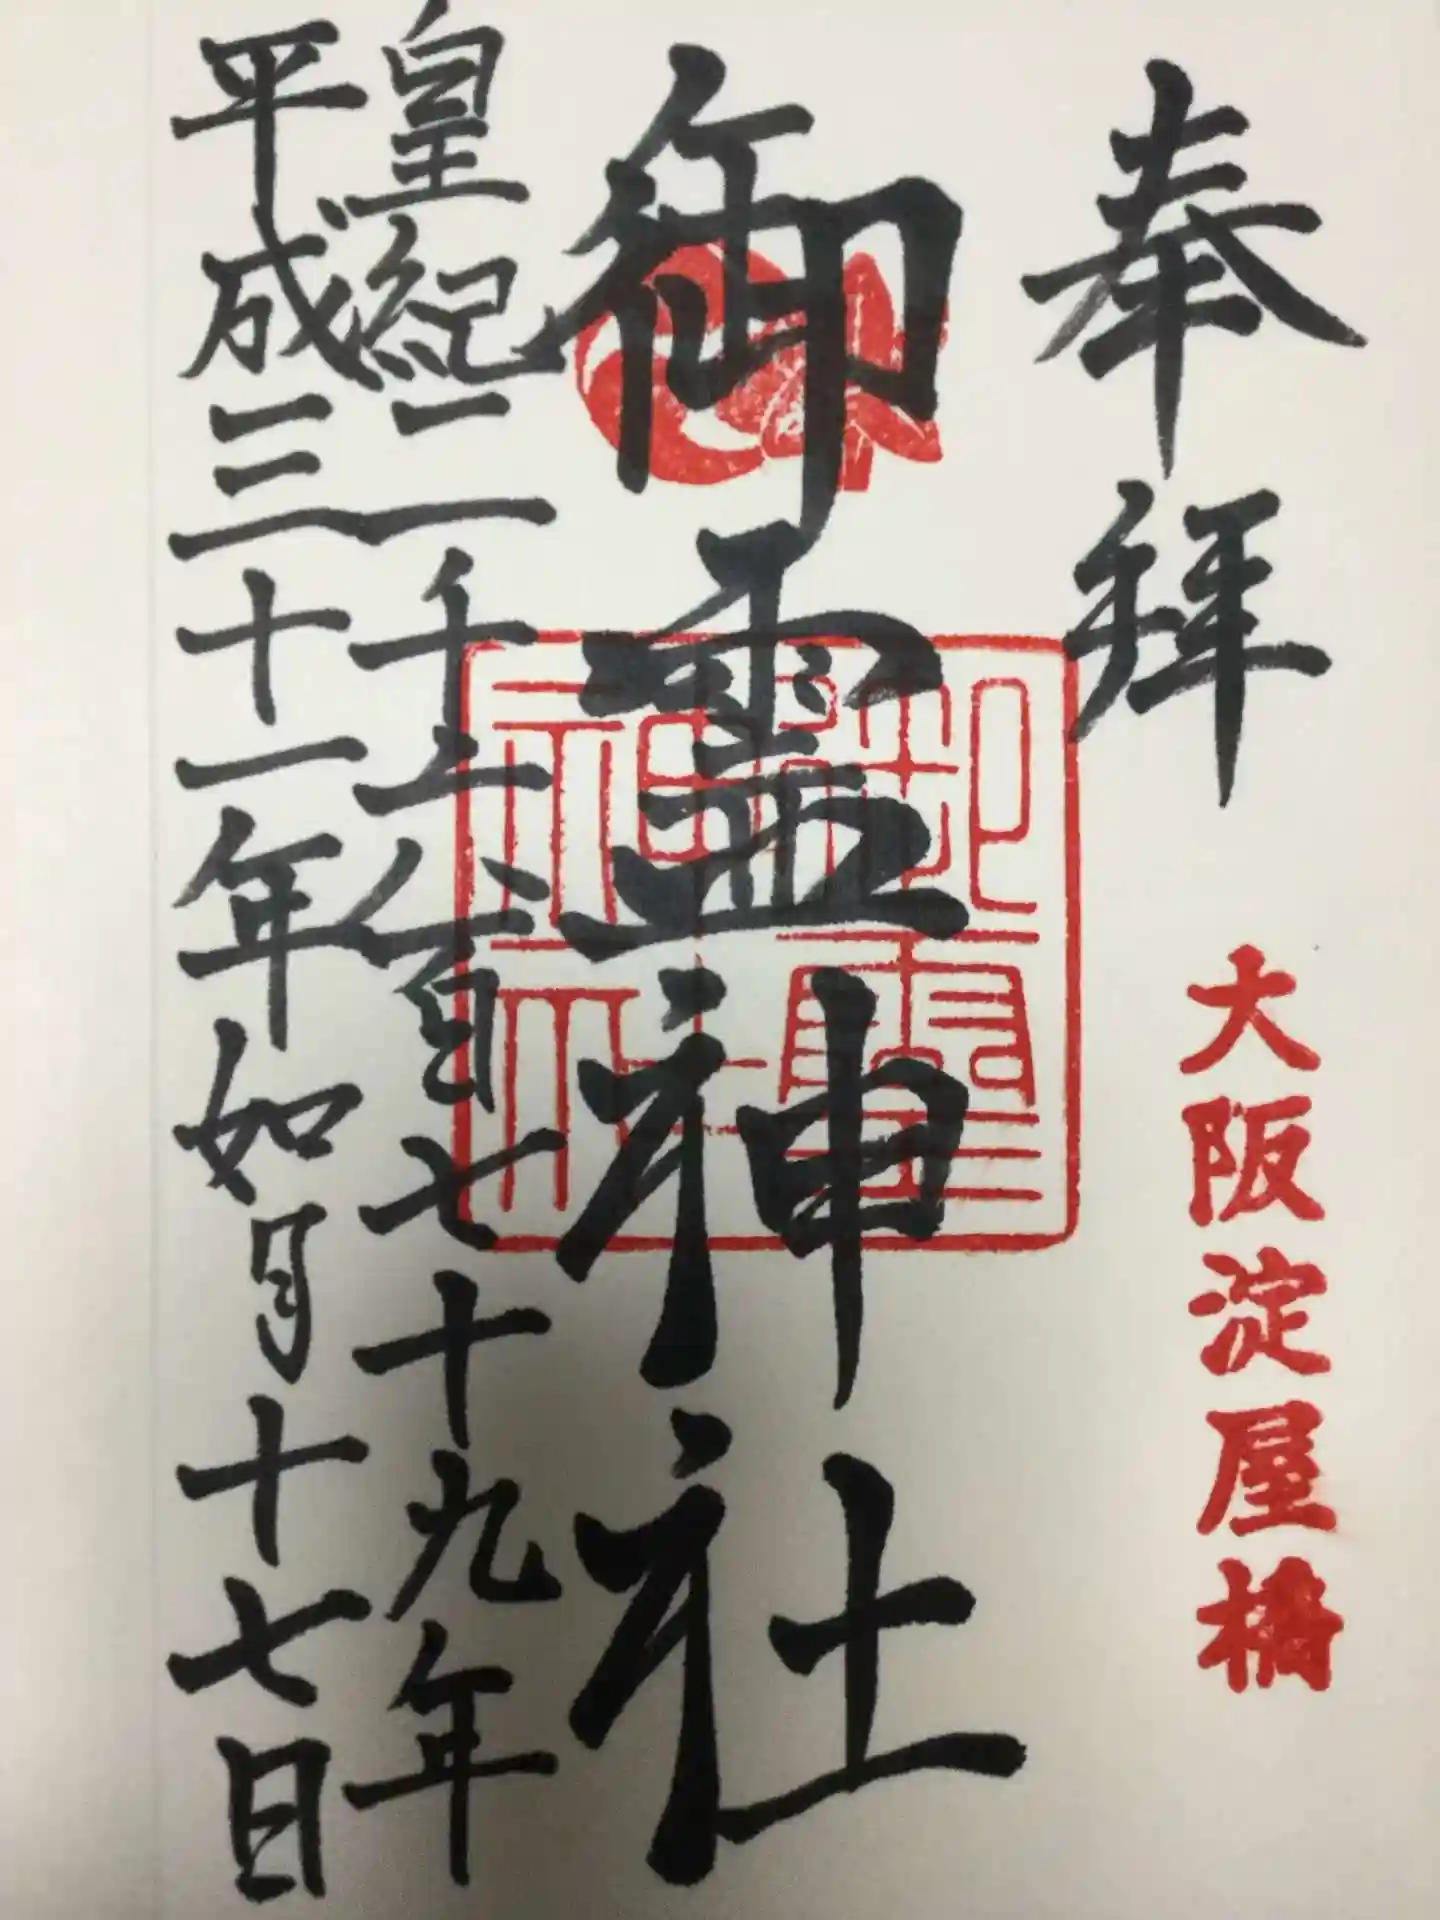 奉拝
大阪淀屋橋
御霊神社
皇紀二千六百七十九年
平成三十一年如月十七日